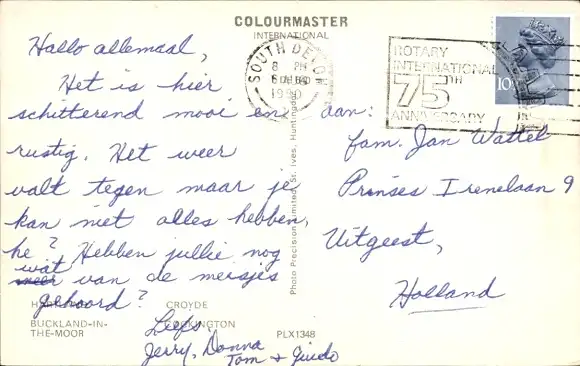 COLOURMASTER
INTERNATIONAL
SOUTH DEVON
8 PM
1980
ROTARY
INTERNATIONAL
75TH
ANNIVERSARY
10
Hallo allemaal,
Het is hier
schitterend mooi en
rustig. Het weer
valt tegen maar je
kan niet alles hebben,
he? Hebben jullie nog
wat van de meisjes
gehoord?
Liefs,
Jerry, Donna
Tom + Guido
aan:
fam. Jan Wattel
Prinses Irenelaan 9
Uitgeest,
Holland
Photo Precision Limited, St. Ives, Huntingdon
CROYDE
BUCKLAND-IN-
THE-MOOR
COCKINGTON
PLX1348